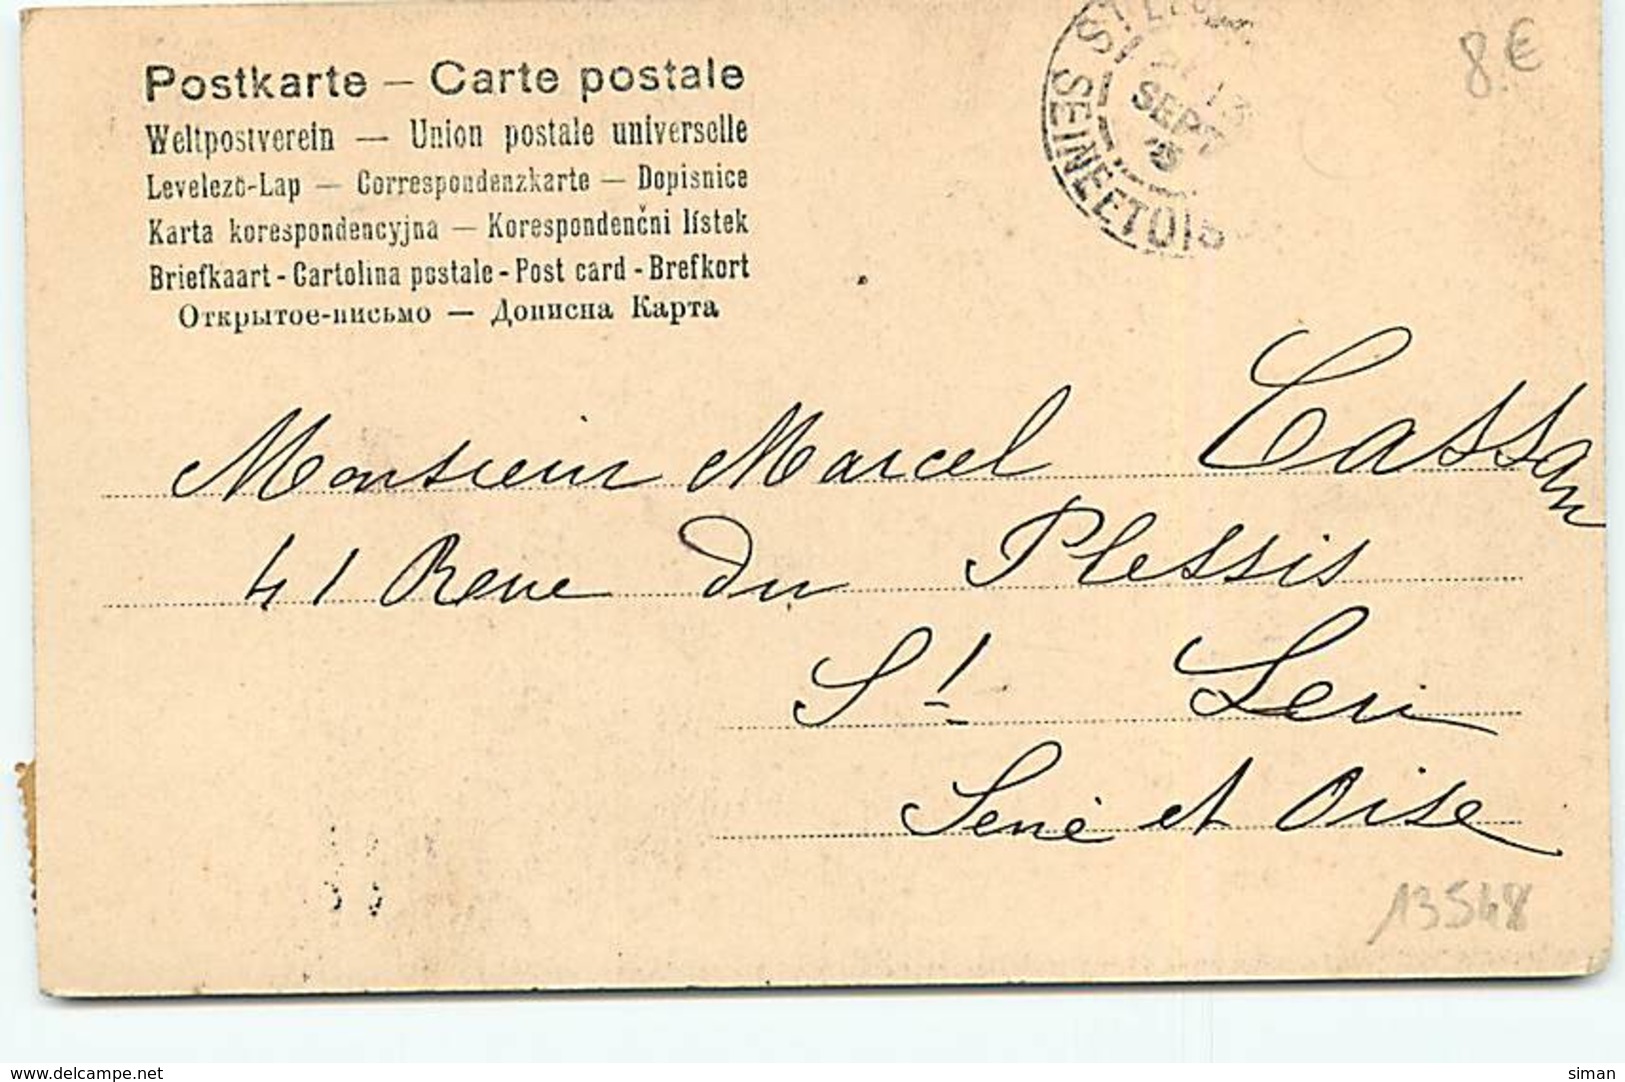 Postkarte — Carte postale
Weltpostverein — Union postale universelle
Levelezö-Lap — Correspondenzkarte — Dopisnice
Karta korespondencyjna — Korespondenční lístek
Briefkaart - Cartolina postale - Post card - Brefkort
Открытое-письмо — Дописна Карта
8.€
SEPT
SEINE ET OISE
Monsieur Marcel Cassan
41 Reue du Plessis
St Leu
Seine et Oise
13548
www.delcampe.net
siman